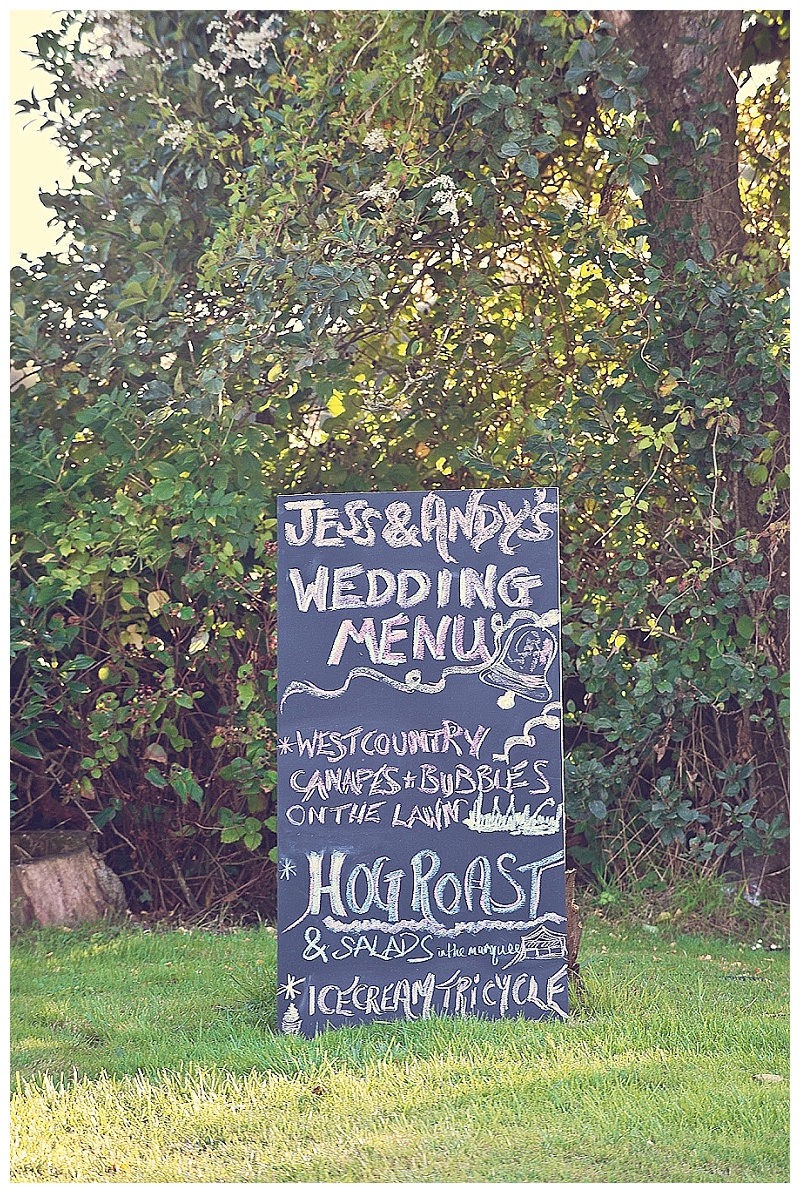 JESS & ANDY'S
WEDDING
MENU
* WESTCOUNTRY
CANAPES + BUBBLES
ON THE LAWN
* HOG ROAST
& SALADS in the marquee
* ICECREAM TRICYCLE